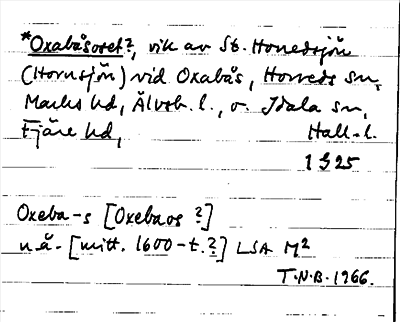 *Oxabåsoset?, vik av St. Horredsjön
(Hornsjön) vid Oxabås, Horreds sn,
Marks hd, Älvsb. l., o. Idala sn,
Fjäre hd, Hall. l.
1925
Oxeba-s [Oxebaos ?]
n.å. [mitt. 1600-t.?] LSA M²
T.N.B. 1966.